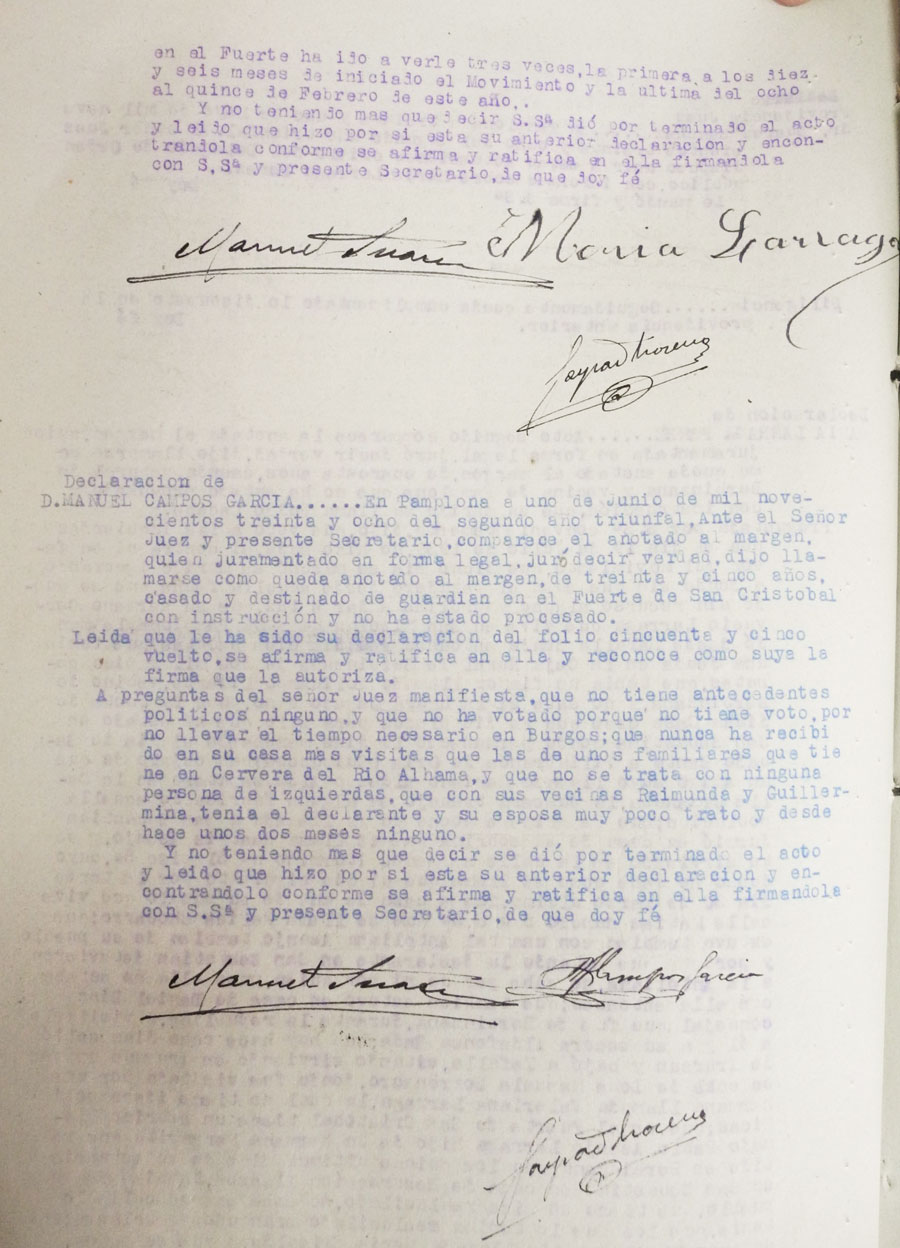 en el Fuerte ha ido a verle tres veces,la primera a los diez
y seis meses de iniciado el Movimiento y la ultima del ocho
al quince de Febrero de este año..
Y no teniendo mas que decir S.Sª dió por terminado el acto
y leido que hizo por si esta su anterior declaracion y encon-
trandola conforme se afirma y ratifica en ella firmandola
con S,Sª y presente Secretario,de que doy fé
Manuel Suarez Maria Larraga
Declaracion de
D.MANUEL CAMPOS GARCIA......En Pamplona a uno de Junio de mil nove-
cientos treinta y ocho del segundo año triunfal,Ante el Señor
Juez y presente Secretario,comparece el anotado al margen,
quien juramentado en forma legal,juró decir verdad,dijo lla-
marse como queda anotado al margen,de treinta y cinco años,
casado y destinado de guardian en el Fuerte de San Cristobal
con instrucción y no ha estado procesado.
Leida que le ha sido su declaracion del folio cincuenta y cinco
vuelto,se afirma y ratifica en ella y reconoce como suya la
firma que la autoriza.
A preguntas del señor Juez manifiesta,que no tiene antecedentes
politicos ninguno,y que no ha votado porque no tiene voto,por
no llevar el tiempo necesario en Burgos;que nunca ha recibi
do en su casa mas visitas que las de unos familiares que tie
ne en Cervera del Rio Alhama,y que no se trata con ninguna
persona de izquierdas,que con sus vecinas Raimunda y Guiller-
mina,tenia el declarante y su esposa muy poco trato y desde
hace unos dos meses ninguno.
Y no teniendo mas que decir se dió por terminado el acto
y leido que hizo por si esta su anterior declaracion y en-
contrandolo conforme se afirma y ratifica en ella firmandola
con S.Sª y presente Secretario,de que doy fé
Manuel Suarez M Campos Garcia